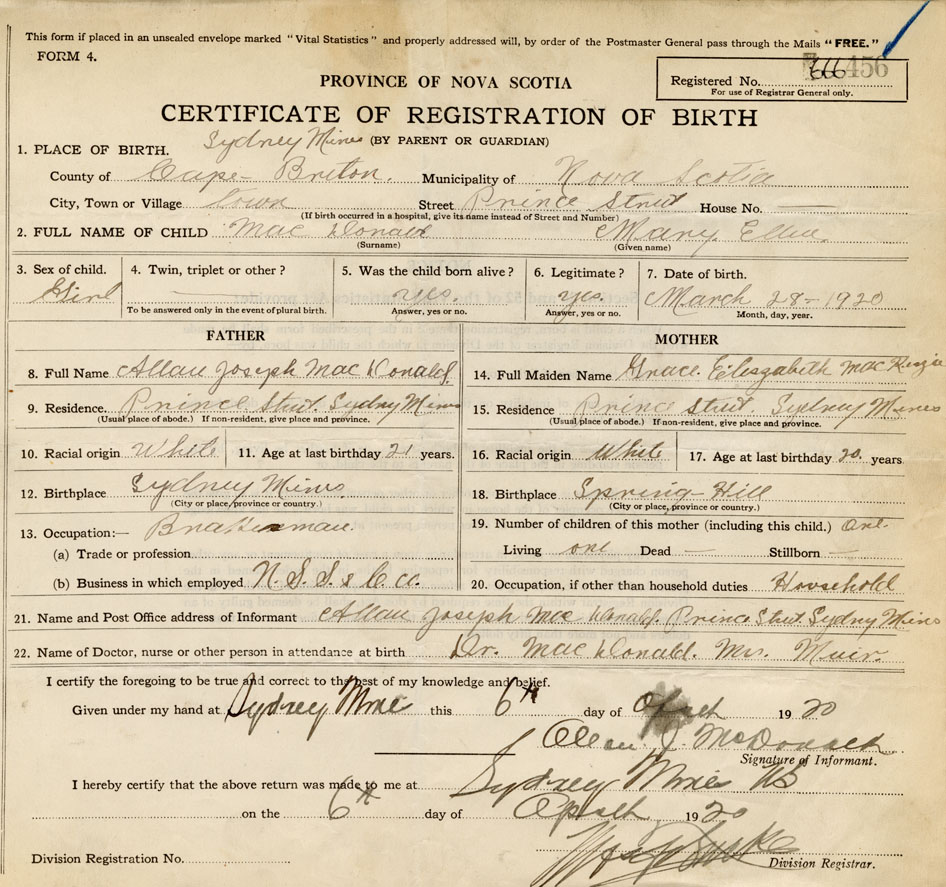 This form if placed in an unsealed envelope marked "Vital Statistics" and properly addressed will, by order of the Postmaster General pass through the Mails "FREE."
FORM 4.
PROVINCE OF NOVA SCOTIA
Registered No. 456
For use of Registrar General only.
CERTIFICATE OF REGISTRATION OF BIRTH
Sydney Mines (BY PARENT OR GUARDIAN)
1. PLACE OF BIRTH.
County of Cape Breton. Municipality of Nova Scotia
City, Town or Village town Street Prince Street House No.
(If birth occurred in a hospital, give its name instead of Street and Number)
2. FULL NAME OF CHILD Mac Donald Mary
(Surname) (Given name)
3. Sex of child. 4. Twin, triplet or other? 5. Was the child born alive? 6. Legitimate? 7. Date of birth.
Girl yes. yes. March 28-1920
To be answered only in the event of plural birth. Answer, yes or no. Answer, yes or no. Month, day, year.
FATHER MOTHER
8. Full Name Allan Joseph Mac Donald. 14. Full Maiden Name Grace
9. Residence. Prince Street. Sydney Mines 15. Residence Prince Street. Sydney Mines
(Usual place of abode.) If non-resident, give place and province. (Usual place of abode.) If non-resident, give place and province.
10. Racial origin White 11. Age at last birthday 21 years. 16. Racial origin White 17. Age at last birthday 20. years.
12. Birthplace Sydney Mines. 18. Birthplace Spring-Hill
(City or place, province or country.) (City or place, province or country.)
13. Occupation:— 19. Number of children of this mother (including this child.) One.
(a) Trade or profession Living one Dead — Stillborn —
(b) Business in which employed 20. Occupation, if other than household duties Household
21. Name and Post Office address of Informant Allan Joseph Mac Donald. Prince Street Sydney Mines
22. Name of Doctor, nurse or other person in attendance at birth Dr. Mac Donald. Mrs. Muir.
I certify the foregoing to be true and correct to the best of my knowledge and belief.
Given under my hand at Sydney this 6th day of 1920
Allan J. McDonald
Signature of Informant.
I hereby certify that the above return was made to me at Sydney Mines NS
on the 6th day of 1920
Division Registration No. Division Registrar.